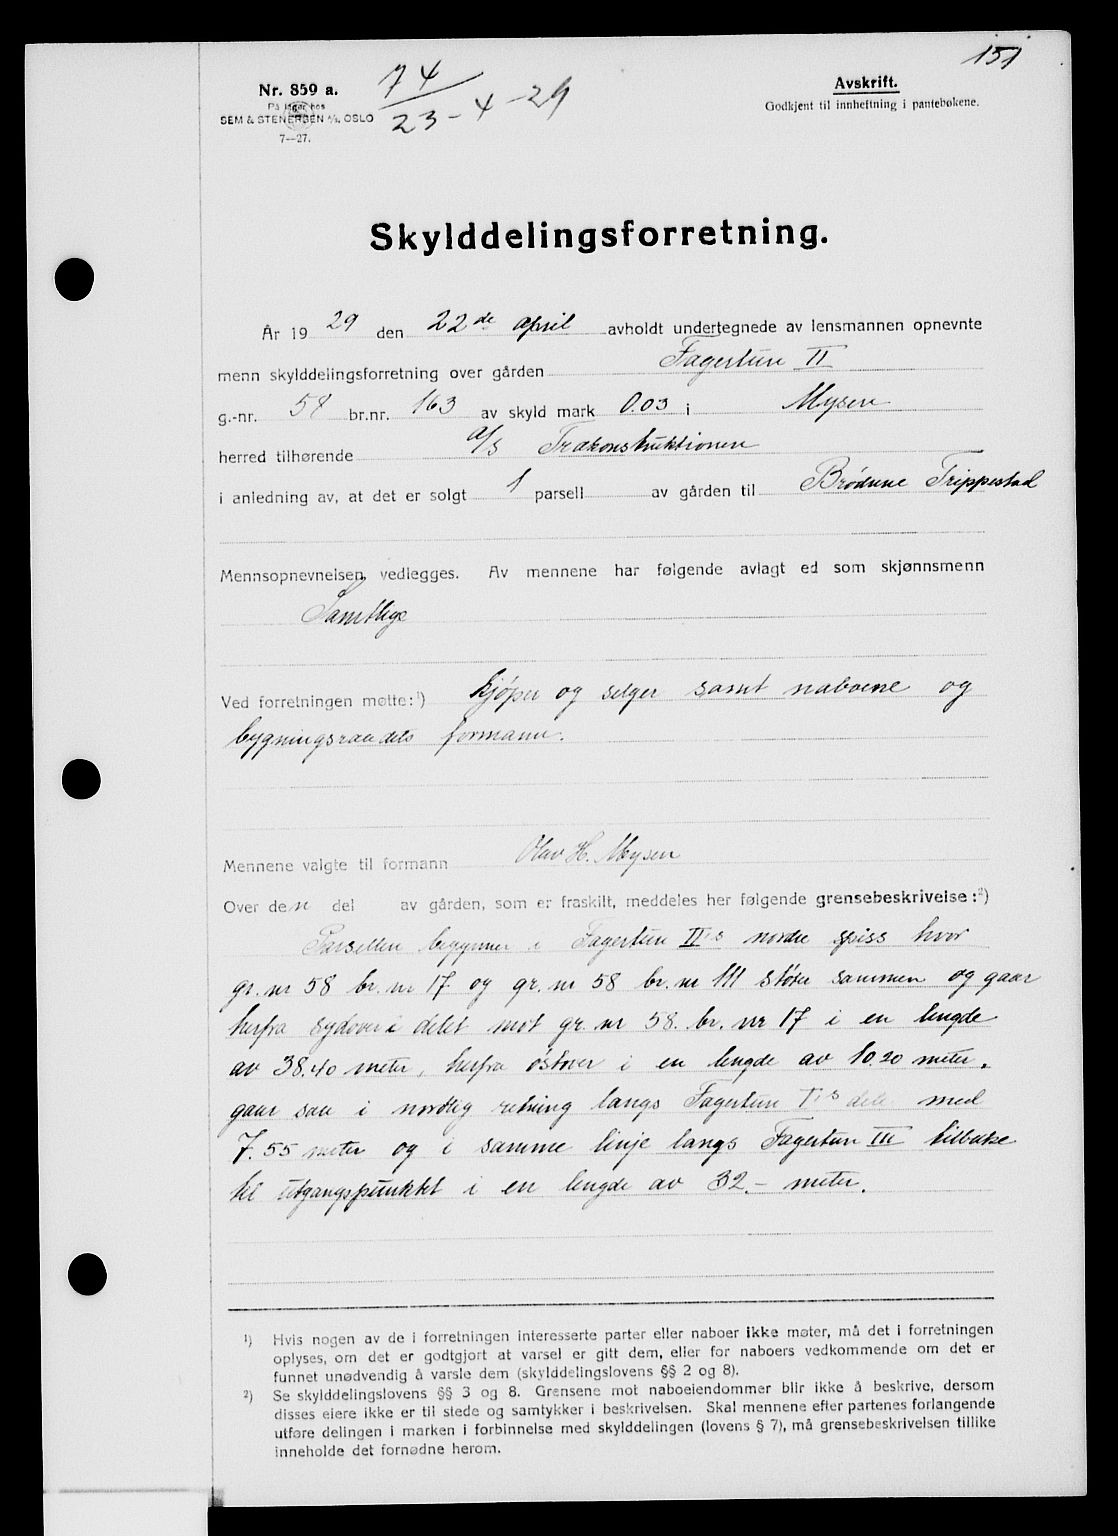 151
Nr. 859 a.
På lager hos
SEM & STENERSEN A/S, OSLO
7—27.
74
23-4-29
Avskrift.
Godkjent til innheftning i pantebøkene.
Skylddelingsforretning.
År 19 29 den 22de april avholdt undertegnede av lensmannen opnevnte
menn skylddelingsforretning over gården Fagertun II
g.-nr. 58 br.nr. 163 av skyld mark 0.03 i Mysen
herred tilhørende a/s Trækonstruktionen
i anledning av, at det er solgt 1 parsell av gården til Brødrene Trippestad
Mennsopnevnelsen vedlegges. Av mennene har følgende avlagt ed som skjønnsmenn
Samtlige
Ved forretningen møtte:¹) kjøper og selger samt naboene og
bygningsraadets formann.
Mennene valgte til formann Olav H. Mysen
Over den del av gården, som er fraskilt, meddeles her følgende grensebeskrivelse:²)
Parsellen begynner i Fagertun II's nordre spiss hvor
gr. nr 58 br. nr 17 og gr. nr 58 br. nr 111 støter sammen og gaar
herfra sydover i delet mot gr. nr 58. br. nr 17 i en lengde
av 38.40 meter, herfra østover i en lengde av 10.20 meter,
gaar saa i nordlig retning langs Fagertun I's dele med
7.55 meter og i samme linje langs Fagertun III tilbake
til utgangspunktet i en lengde av 32.- meter.
¹) Hvis nogen av de i forretningen interesserte parter eller naboer ikke møter, må det i forretningen
oplyses, om det er godtgjort at varsel er gitt dem, eller for naboers vedkommende om det er
funnet unødvendig å varsle dem (skylddelingslovens §§ 2 og 8).
²) Se skylddelingslovens §§ 3 og 8. Grensene mot naboeiendommer blir ikke å beskrive, dersom
disses eiere ikke er til stede og samtykker i beskrivelsen. Skal mennene efter partenes forlangende
utføre delingen i marken i forbinnelse med skylddelingen (lovens § 7), må grensebeskrivelsen tillike
inneholde det fornødne herom.